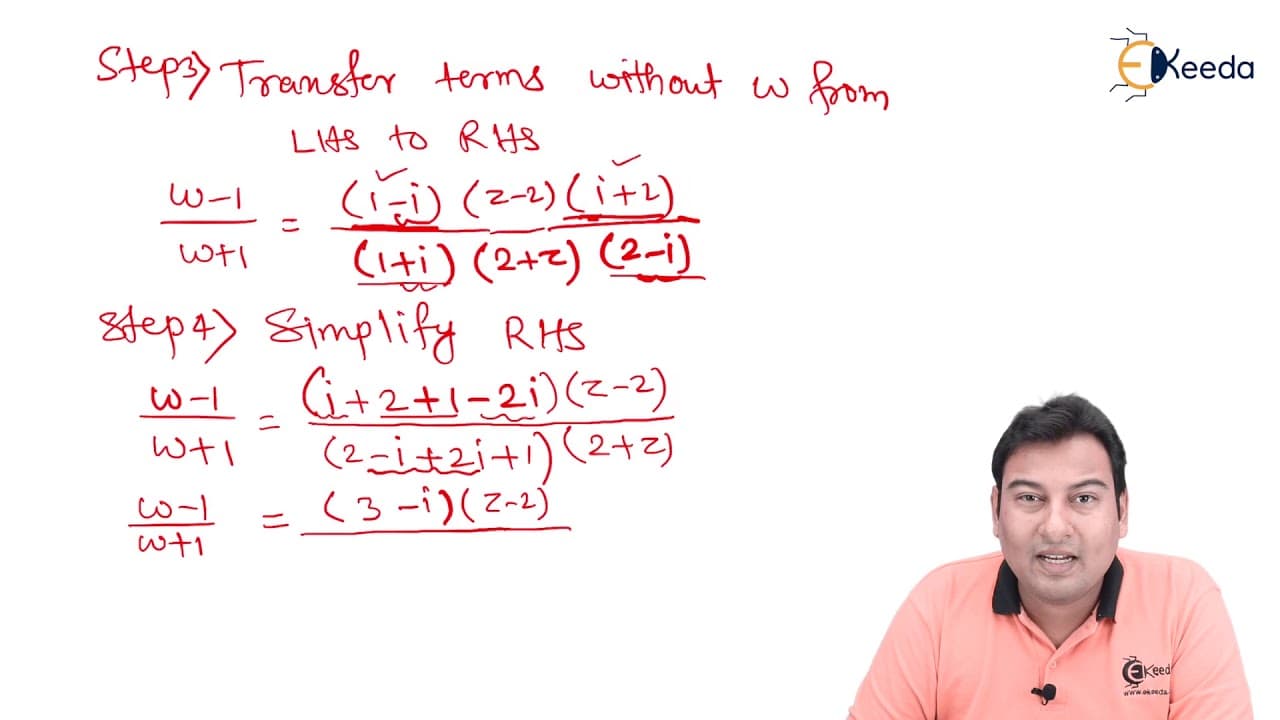 EKeeda
Step3> Transfer terms without w from
LHS to RHS
w-1 / w+1 = (1-i) (z-2) (i+2) / (1+i) (2+z) (2-i)
Step 4> Simplify RHS
w-1 / w+1 = (i+2+1-2i)(z-2) / (2-i+2i+1)(2+z)
w-1 / w+1 = (3-i)(z-2)
EKeed